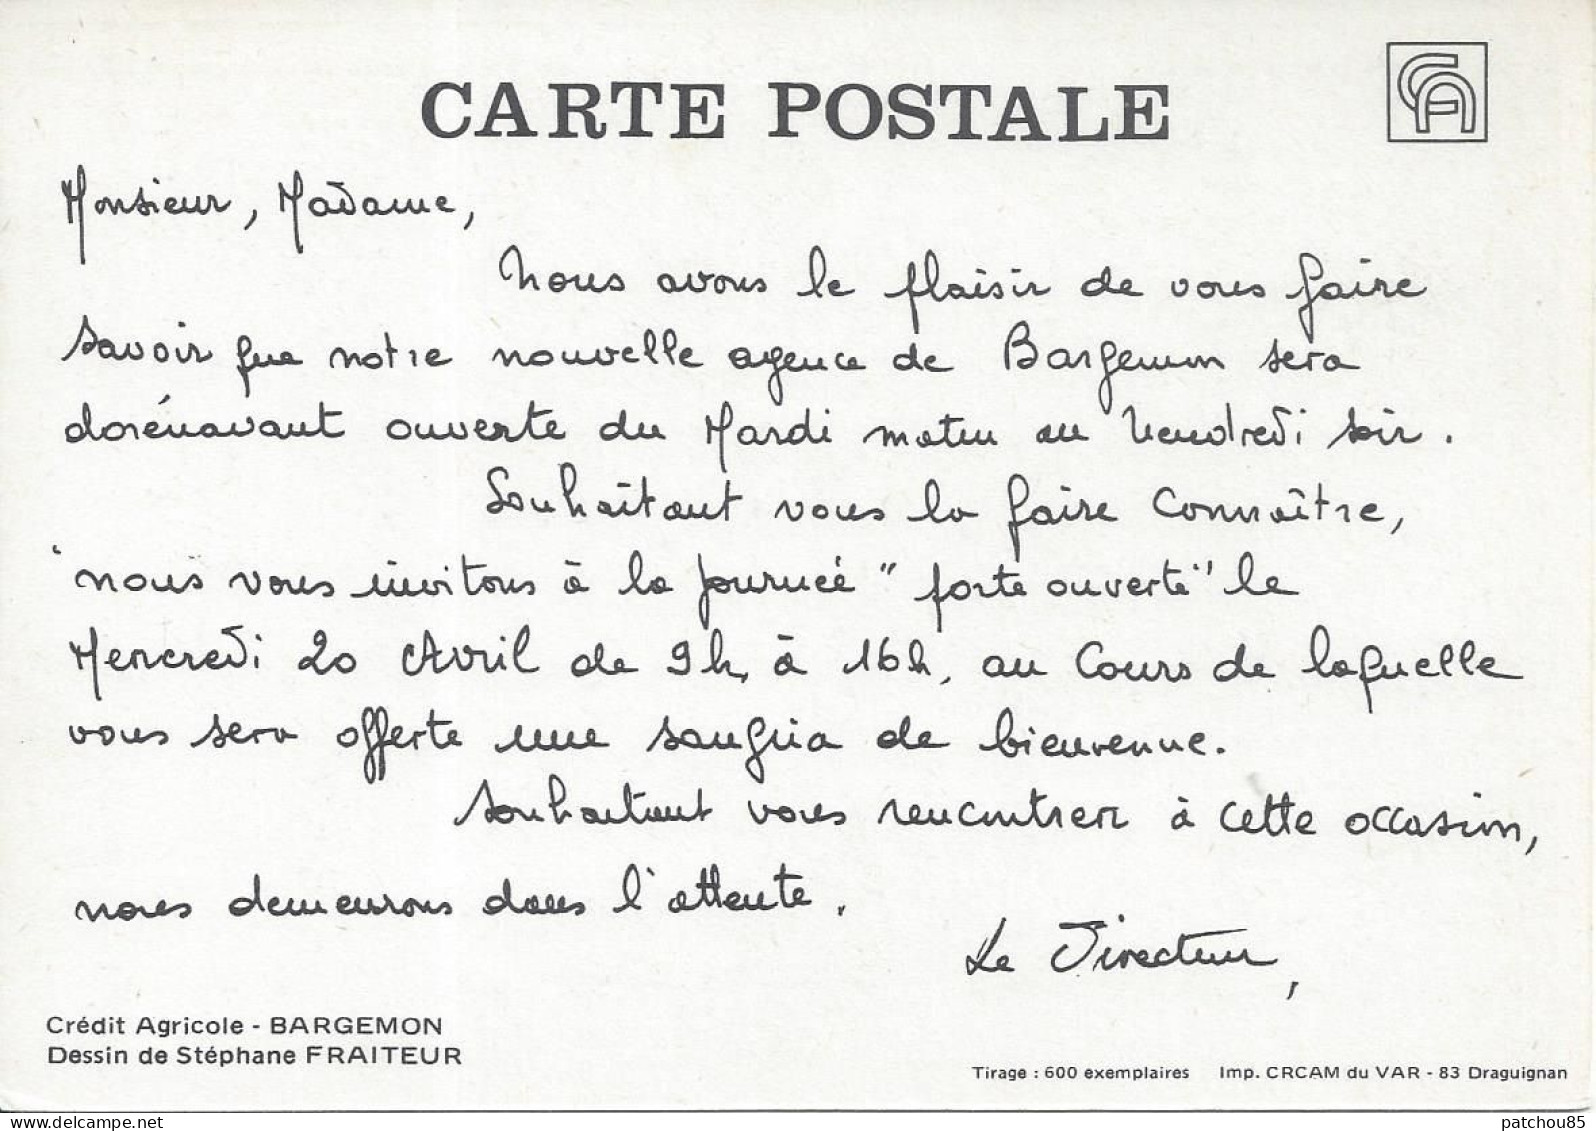 CARTE POSTALE
CA
Monsieur, Madame,
Nous avons le plaisir de vous faire
savoir que notre nouvelle agence de Bargemon sera
dorénavant ouverte du Mardi matin au Vendredi soir.
Souhaitant vous la faire connaître,
nous vous invitons à la journée "porte ouverte" le
Mercredi 20 Avril de 9h, à 16h, au Cours de laquelle
vous sera offerte une sangria de bienvenue.
Souhaitant vous rencontrer à cette occasion,
nous demeurons dans l'attente.
Le Directeur,
Crédit Agricole - BARGEMON
Dessin de Stéphane FRAITEUR
Tirage : 600 exemplaires Imp. CRCAM du VAR - 83 Draguignan
patchou85